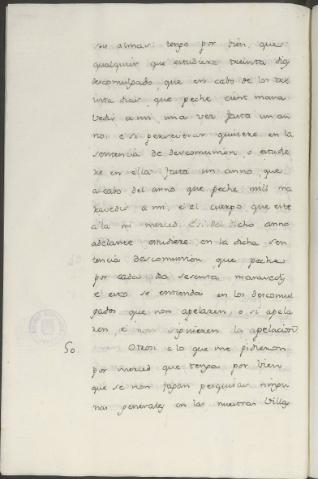 sus almas: tengo por bien, que
qualquier que estudiere treinta dias
descomulgado, que en cabo de los tre
inta dias, que peche cient mara
vedis a mi una vez fasta un an
no, e si perseverar quisiere en la
sentencia de descomunion, o estudie
re en ella fasta un anno, que
a cabo del anno que peche mill ma
ravedis a mi, e el cuerpo que este
a la mi merced. E si del dicho anno
adelante estudiere en la dicha sen
tencia descomunion que peche
por cada dia sesenta maravedis,
e esto se entienda en los descomul
gados que non apelaren, o si apela
ren, e non siguieren la apelacion
50. Otrosi a lo que me pidieron
por merced que tenga por bien
que se non fagan pesquisas ningu
nas generales en las nuestras Villas